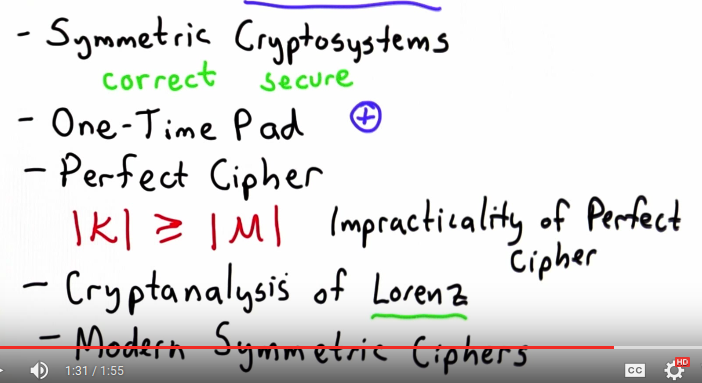 - Symmetric Cryptosystems
correct secure
- One-Time Pad ⊕
- Perfect Cipher
|K| ≥ |M| Impracticality of Perfect
Cipher
- Cryptanalysis of Lorenz
- Modern Symmetric Ciphers
1:31 / 1:55 CC HD